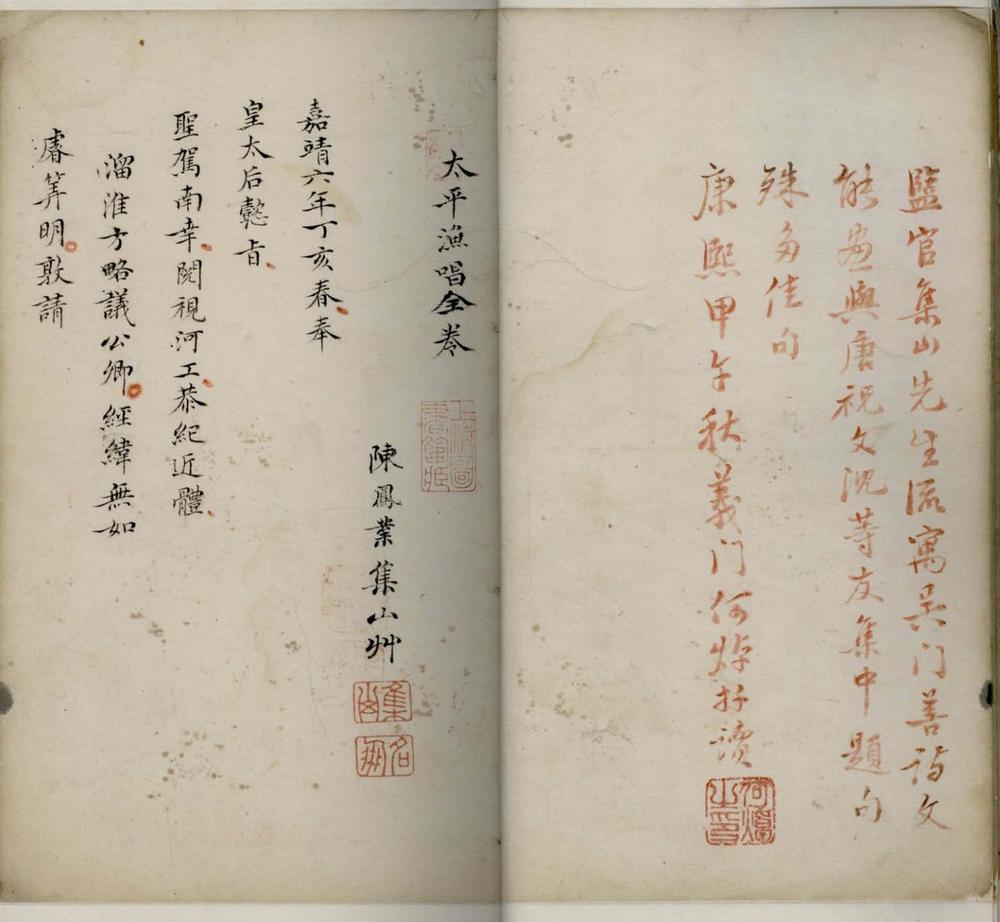 監官集山先生流寓吳门善詩文
能畫與唐祝文沈等友集中題句
殊多佳句
康熙甲午秋義门何焯拜讀
何焯之印
太平漁唱全卷
上海圖書館藏
陳鳳業集山艸
集山
名
嘉靖六年丁亥春奉
皇太后懿旨
聖駕南幸閱視河工恭紀近體
溜淮方略議公卿經緯無如
睿筭明敦請